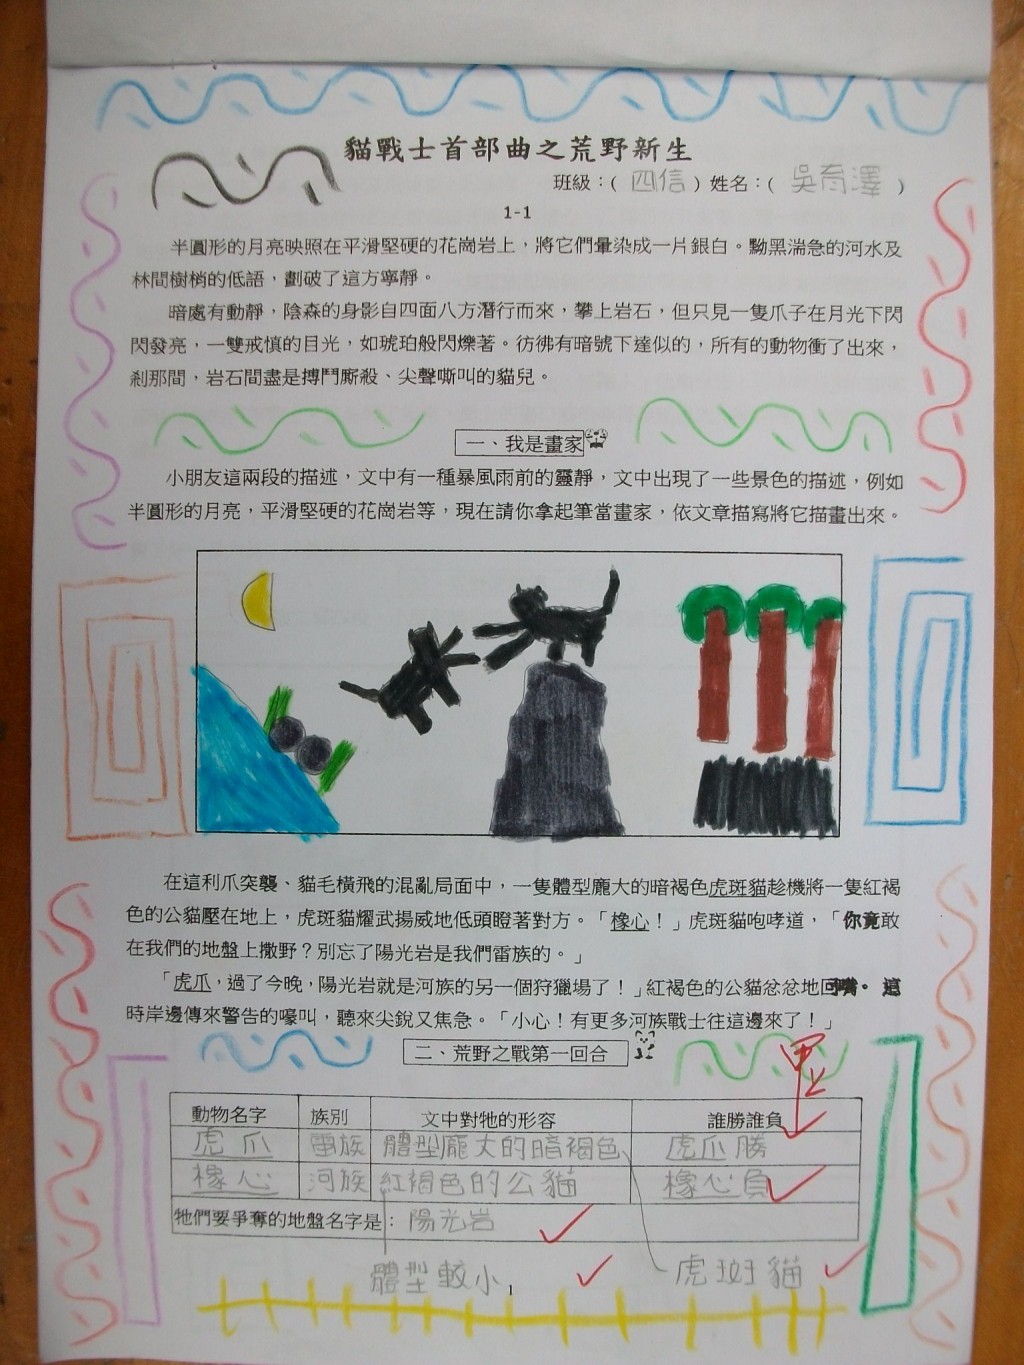 貓戰士首部曲之荒野新生
班級：( 四信 ) 姓名：( 吳育澤 )
1-1
半圓形的月亮映照在平滑堅硬的花崗岩上，將它們暈染成一片銀白。黝黑湍急的河水及
林間樹梢的低語，劃破了這方寧靜。
暗處有動靜，陰森的身影自四面八方潛行而來，攀上岩石，但只見一隻爪子在月光下閃
閃發亮，一雙戒慎的目光，如琥珀般閃爍著。彷彿有暗號下達似的，所有的動物衝了出來，
剎那間，岩石間盡是搏鬥廝殺、尖聲嘶叫的貓兒。
一、我是畫家
小朋友這兩段的描述，文中有一種暴風雨前的靈靜，文中出現了一些景色的描述，例如
半圓形的月亮，平滑堅硬的花崗岩等，現在請你拿起筆當畫家，依文章描寫將它描畫出來。
在這利爪突襲、貓毛橫飛的混亂局面中，一隻體型龐大的暗褐色虎斑貓趁機將一隻紅褐
色的公貓壓在地上，虎斑貓耀武揚威地低頭瞪著對方。「橡心！」虎斑貓咆哮道，「你竟敢
在我們的地盤上撒野？別忘了陽光岩是我們雷族的。」
「虎爪，過了今晚，陽光岩就是河族的另一個狩獵場了！」紅褐色的公貓忿忿地回嘴。這
時岸邊傳來警告的嚎叫，聽來尖銳又焦急。「小心！有更多河族戰士往這邊來了！」
二、荒野之戰第一回合
甲上
動物名字 族別 文中對牠的形容 誰勝誰負
虎爪 雷族 體型龐大的暗褐色 虎爪勝
橡心 河族 紅褐色的公貓 橡心負
牠們要爭奪的地盤名字是：陽光岩
體型較小 虎斑貓
1